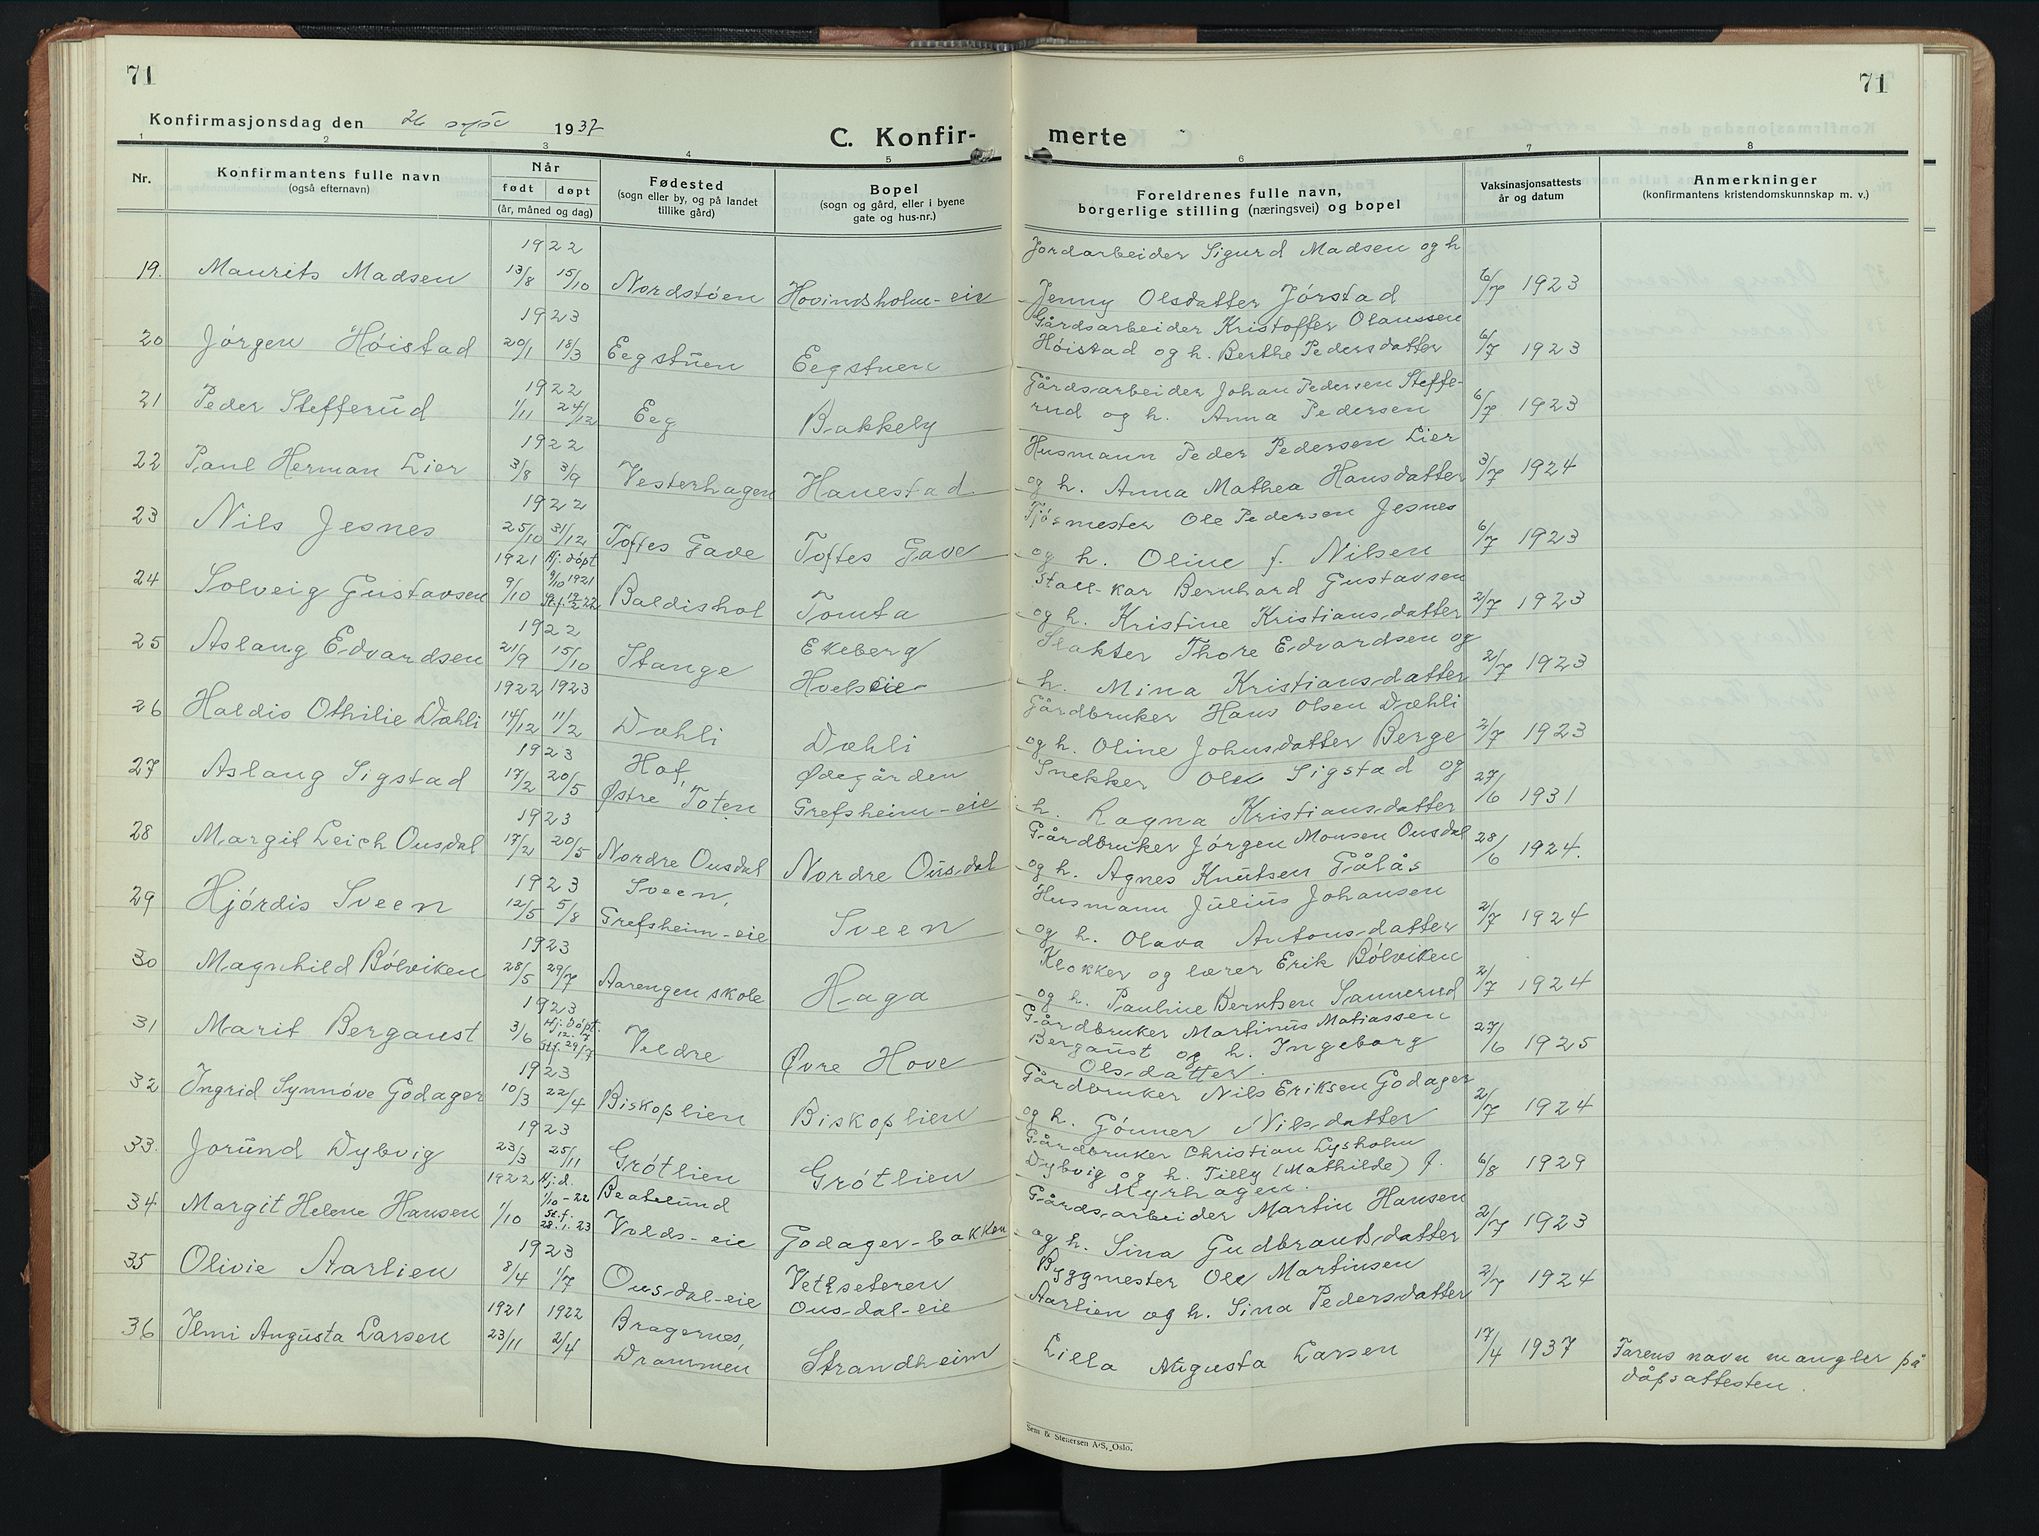 71
71
Konfirmasjonsdag den 26 sept 1937
C. Konfir-
merte
1 2 3 4 5 6 7 8
Nr.
Konfirmantens fulle navn
(også efternavn)
Når
født døpt
(år, måned og dag)
Fødested
(sogn eller by, og på landet
tillike gård)
Bopel
(sogn og gård, eller i byene
gate og hus-nr.)
Foreldrenes fulle navn,
borgerlige stilling (næringsvei) og bopel
Vaksinasjonsattests
år og datum
Anmerkninger
(konfirmantens kristendomskunnskap m. v.)
1922 Jordarbeider Sigurd Madsen og h
19. Maurits Madsen 13/8 15/10 Nordstøen Hovindsholm-eie Jenny Olsdatter Jørstad 6/7 1923
1923 Gårdsarbeider Kristoffer Olaussen
20 Jørgen Høistad 20/1 18/3 Eegstuen Eegstuen Høistad og h. Berthe Pedersdatter 6/7 1923
1922 Gårdsarbeider Johan Pedersen Steffe-
21 Peder Stefferud 1/11 24/12 Eeg Bakkely rud og h. Anna Pedersen 6/7 1923
1922 Husmann Peder Pedersen Lier
22 Paul Herman Lier 3/8 3/9 Vesterhagen Hanestad og h. Anna Mathea Hansdatter 3/7 1924
1922 Fjøsmester Ole Pedersen Jesnes
23 Nils Jesnes 25/10 31/12 Toftes Gave Toftes Gave og h. Oline f. Nilsen 6/7 1923
1921 Hj. døpt Stall-kar Bernhard Gustavsen
24 Solveig Gustavsen 9/10 9/10 1921 St.f. 19/2 22 Baldishol Tomta og h. Kristine Kristiansdatter 2/7 1923
1922 Ekeberg Slakter Thore Edvardsen og
25 Aslaug Edvardsen 21/9 15/10 Stange Hoelseie h. Mina Kristiansdatter 2/7 1923
1922 1923 Gårdbruker Hans Olsen Dæhli
26 Haldis Othilie Dæhli 14/12 11/2 Dæhli Dæhli og h. Oline Johnsdatter Berge 2/7 1923
1923 Hof, Ødegården Snekker Ole Sigstad og
27 Aslaug Sigstad 17/2 20/5 Østre Toten Grefsheim-eie h. Ragna Kristiansdatter 27/6 1931
1923 Gårdbruker Jørgen Monsen Ousdal
28 Margit Leich Ousdal 17/2 20/5 Nordre Ousdal Nordre Ousdal og h. Agnes Knutsen Gålås 28/6 1924.
1923 Sveen, Husmann Julius Johansen
29 Hjørdis Sveen 12/5 5/8 Grefsheim-eie Sveen og h. Olava Antonsdatter 2/7 1924
1923 Klokker og lærer Erik Bølviken
30 Magnhild Bølviken 28/5 29/7 Aarengen skole Haga og h. Pauline Berntsen Sannerud 2/7 1924
1923 Hj. døpt. Gårdbruker Martinus Matiassen
31 Marit Bergaust 3/6 St.f. 29/7 Veldre Øvre Hove Bergaust og h. Ingeborg 27/6 1925
Olsdatter.
1923 Gårdbruker Nils Eriksen Godager
32 Ingrid Synnøve Godager 10/3 22/4 Biskoplien Biskoplien og h. Gønner Nilsdatter 2/7 1924
1923 Gårdbruker Christian Lysholm
33. Jorund Dybvig 23/3 25/11 Grøtlien Grøtlien Dybvig og h. Tilly (Mathilde) f. 6/8 1929
Myrhagen.
1922 Hj.d. 1/10-22 Beatelund Gårds-arbeider Martin Hansen
34 Margit Helene Hansen 1/10 St.f. 28.1.23 Volds-eie Godager-bakken og h. Sina Gudbrandsdatter 2/7 1923
1923 Vethseteren Byggmester Ole Martinsen
35 Olivie Aarlien 8/4 1/7 Ousdal-eie Ousdal-eie Aarlien og h. Sina Pedersdatter 2/7 1924
1921 1922 Bragernes,
36 Ilmi Augusta Larsen 23/11 2/4 Drammen Strandheim Lilla Augusta Larsen 17/4 1937 Farens navn mangler på
dåpsattesten.
Sem & Stenersen A/S, Oslo.